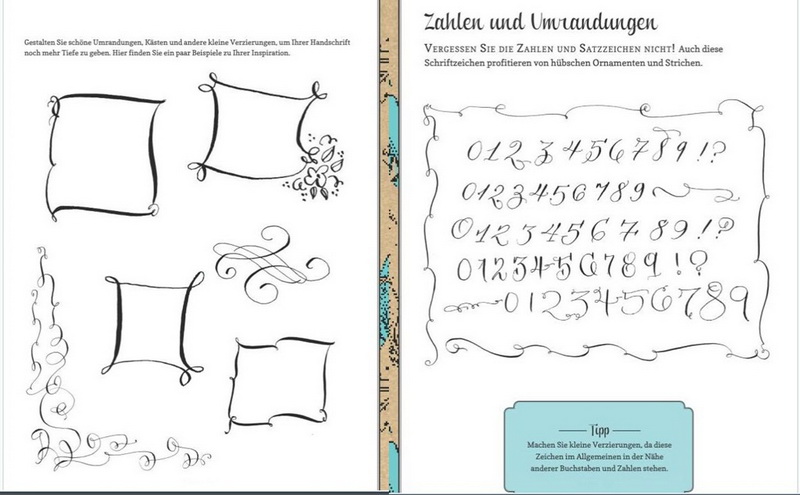 Gestalten Sie schöne Umrandungen, Kästen und andere kleine Verzierungen, um Ihrer Handschrift
noch mehr Tiefe zu geben. Hier finden Sie ein paar Beispiele zu Ihrer Inspiration.
Zahlen und Umrandungen
Vergessen Sie die Zahlen und Satzzeichen nicht! Auch diese
Schriftzeichen profitieren von hübschen Ornamenten und Strichen.
0 1 2 3 4 5 6 7 8 9 ! ?
0 1 2 3 4 5 6 7 8 9
0 1 2 3 4 5 6 7 8 9 ! ?
0 1 2 3 4 5 6 7 8 9 ! ?
0 1 2 3 4 5 6 7 8 9
Tipp
Machen Sie kleine Verzierungen, da diese
Zeichen im Allgemeinen in der Nähe
anderer Buchstaben und Zahlen stehen.